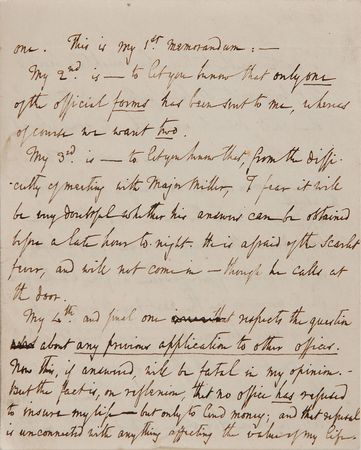 one. This is my 1st memorandum: —
My 2nd is — to let you know that only one
of the official forms has been sent to me, whereas
of course we want two.
My 3rd is — to let you know that, from the diffi-
-culty of meeting with Major Miller, I fear it will
be very doubtful whether his answers can be obtained
before a late hour to-night. He is afraid of the Scarlet
fever, and will not come in — though he calls at
the door.
My 4th and final one respects the question
about any previous application to other offices.
Now this, if answered, will be fatal in my opinion. —
But the fact is, on reflexion, that no office has refused
to insure my life — but only to lend money; and that refusal
is unconnected with anything affecting the value of my life.